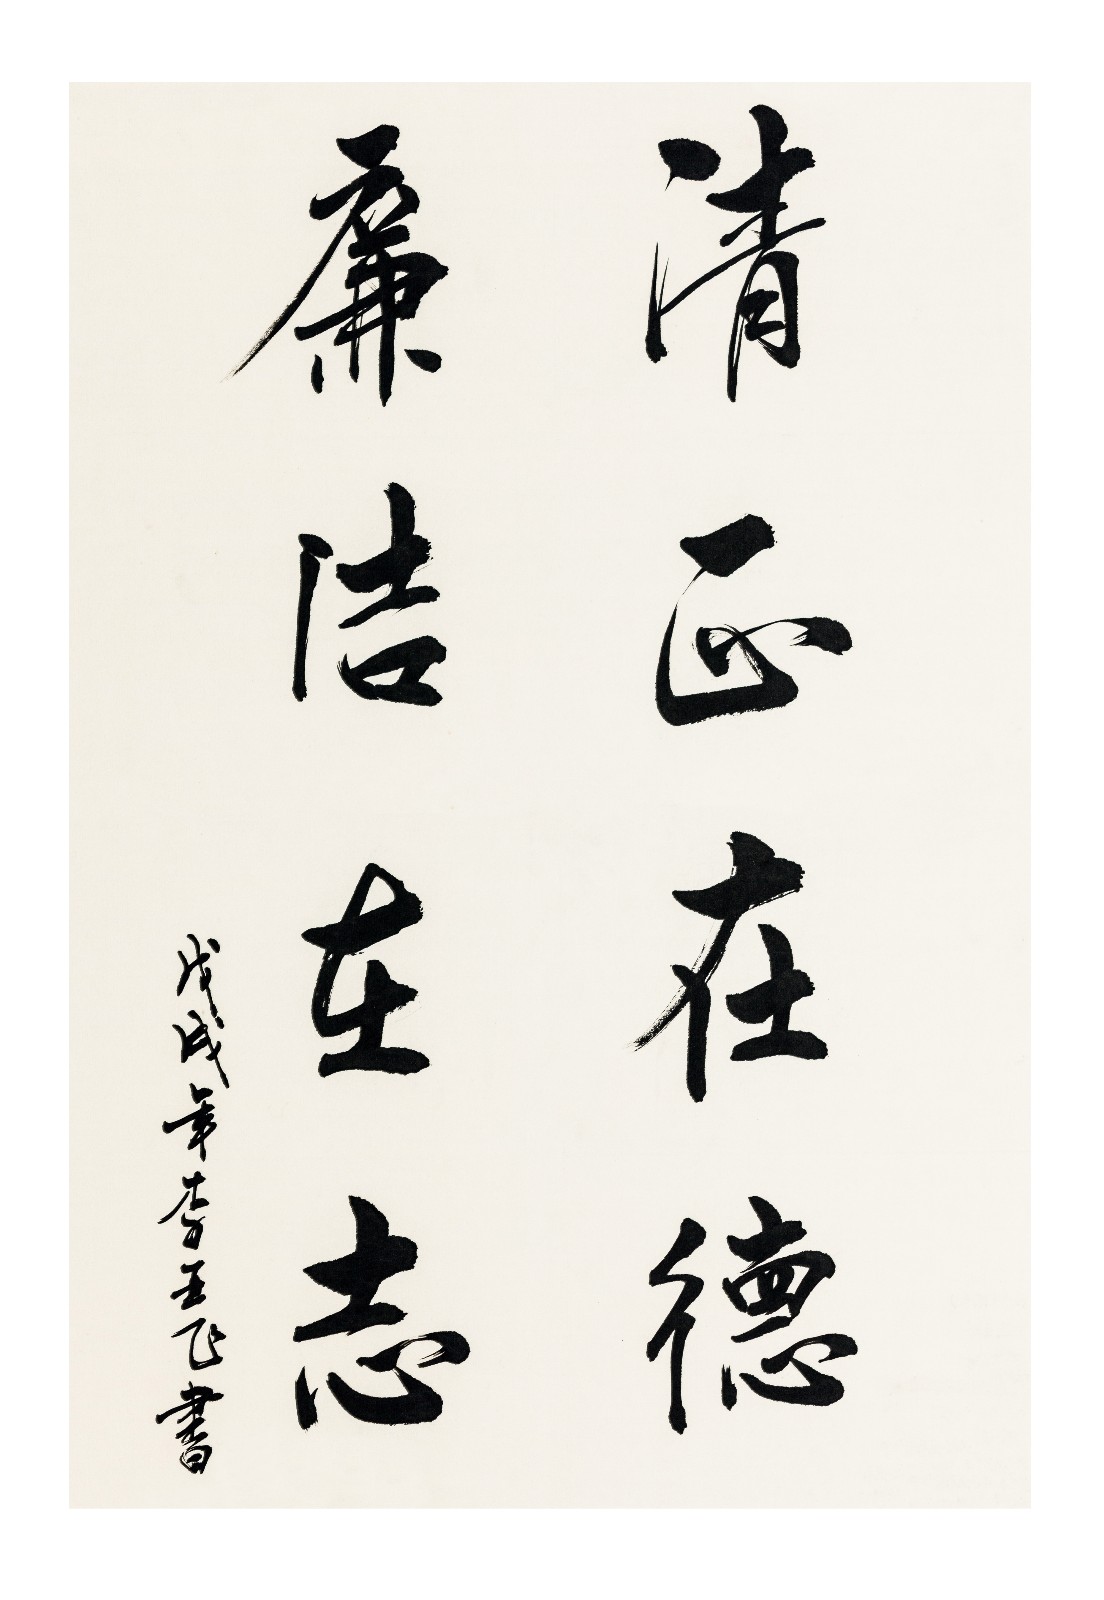 清正在德
廉洁在志
戊戌年李玉飞書